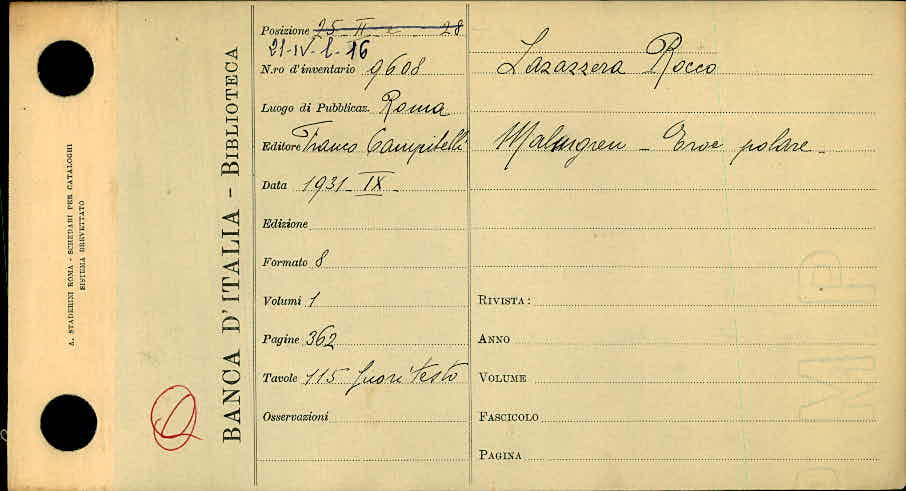 A. STADERINI ROMA - SCHEDARI PER CATALOGHI
SISTEMA BREVETTATO
BANCA D'ITALIA - BIBLIOTECA
Posizione 25 - II - 28
21-IV-l-16
N.ro d'inventario 9608
Luogo di Pubblicaz. Roma
Editore Franco Campitelli
Data 1931 - IX -
Edizione
Formato 8
Volumi 1
Pagine 362
Tavole 115 fuori testo
Osservazioni
Lazazzera Rocco
Malmgren - Eroe polare -
RIVISTA:
ANNO
VOLUME
FASCICOLO
PAGINA